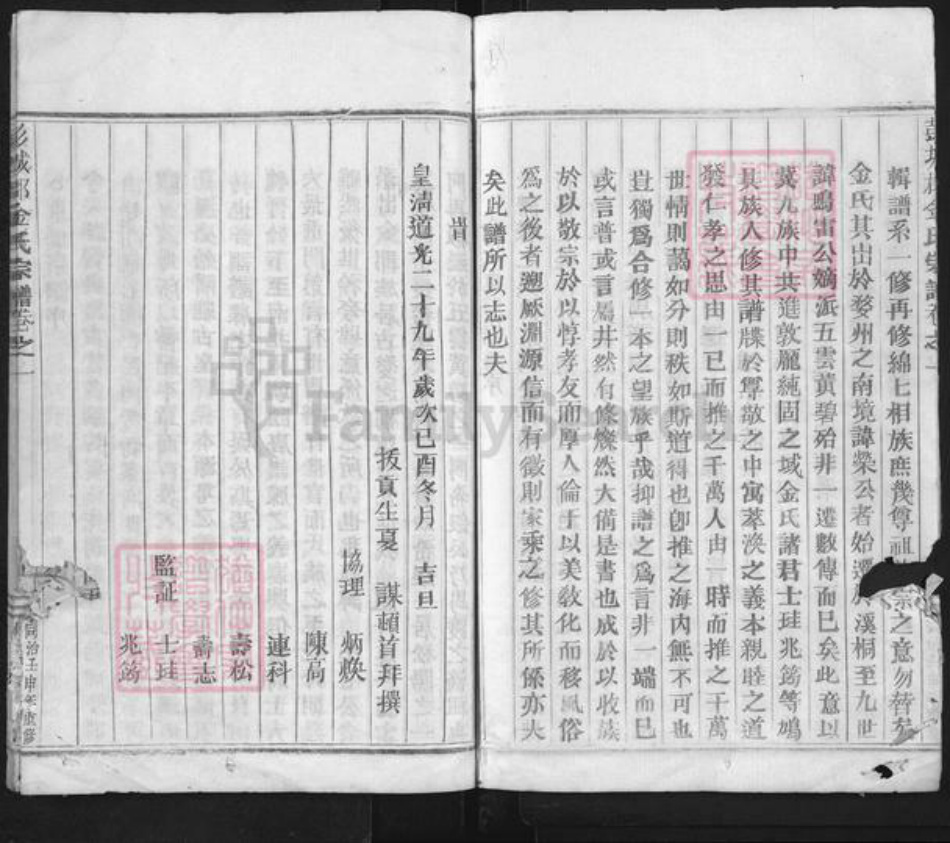 彭城郡金氏宗譜卷之一
輯譜系一修再修綿上相族庶幾尊祖宗之意勿替矣
金氏其出於婺州之南境諱榮公者始遷於溪桐至九世
諱鳴雷公嫡派五雲黃碧殆非一遷數傳而已矣此意以
冀九族中共進敦龎純固之域金氏諸君士珪兆籌等鳩
其族人修其譜牒於尊敬之中寓萃渙之義本親睦之道
發仁孝之思由一已而推之千萬人由一時而推之千萬
世情則藹如分則秩如斯道得也卽推之海內無不可也
豈獨爲合修一本之望族乎哉抑譜之爲言非一端而已
或言普或言屬井然有條燦然大備是書也成於以收族
於以敬宗於以惇孝友而厚人倫于以美敎化而移風俗
爲之後者遡厥淵源信而有徵則家乘之修其所係亦大
矣此譜所以志也夫
旹
皇清道光二十九年歲次已酉冬月 吉旦
拔貢生夏 謀頓首拜撰
協理 炳煥
陳高
連科
壽松
壽志
監証 士珪
兆籌
彭城郡金氏宗譜卷之一
同治壬申年重修
FamilySearch